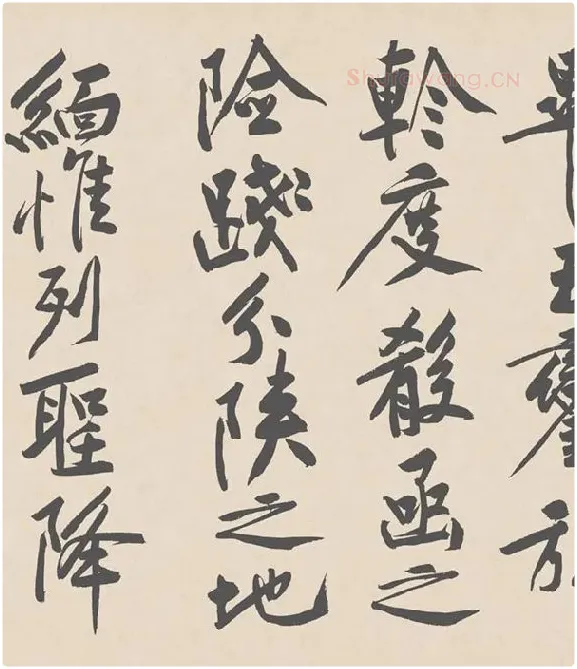 軫度殽函之
險踐分陝之地
緬惟列聖降
Shufawang.CN